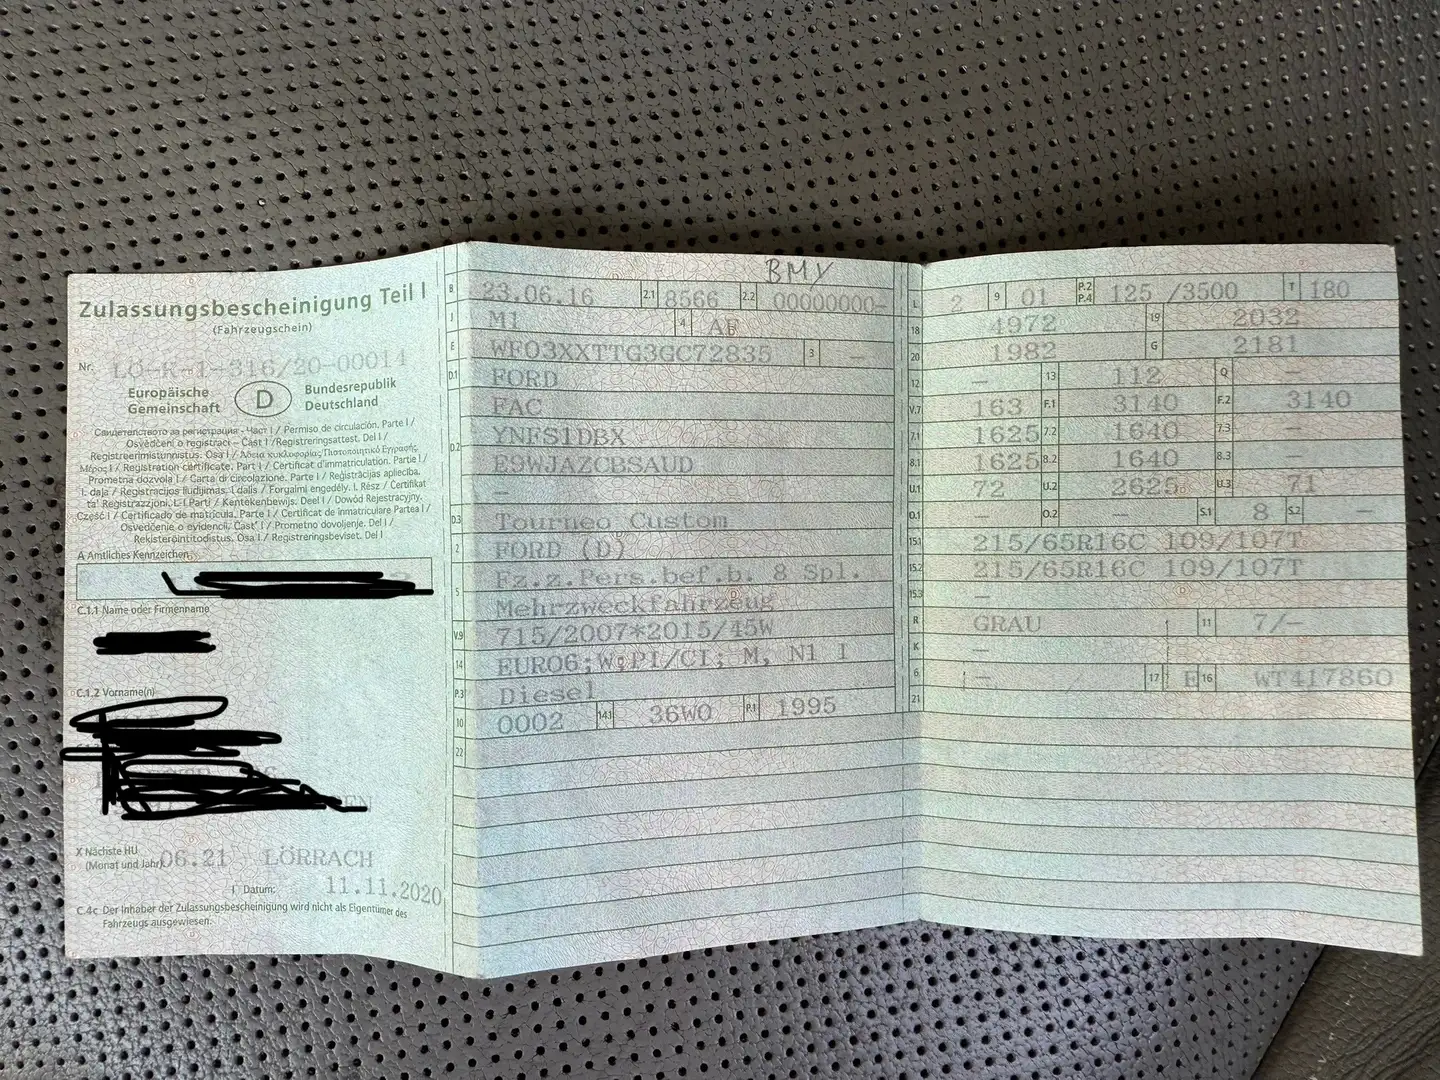 Zulassungsbescheinigung Teil I
(Fahrzeugschein)
Nr. LÖ-K-1 316/20-00014
Europäische Gemeinschaft
D
Bundesrepublik Deutschland
Свидетелство за регистрация - Част I / Permiso de circulación. Parte I /
Osvědčení o registraci – Část I / Registreringsattest. Del I /
Registreerimistunnistus. Osa I / Άδεια κυκλοφορίας/Πιστοποιητικό Εγγραφής.
Μέρος I / Registration certificate. Part I / Certificat d'immatriculation. Partie I /
Prometna dozvola I / Carta di circolazione. Parte I / Reģistrācijas apliecība.
I. daļa / Registracijos liudijimas. I dalis / Forgalmi engedély. I. Rész / Ċertifikat
ta' Reġistrazzjoni. L-I Parti / Kentekenbewijs. Deel I / Dowód Rejestracyjny.
Część I / Certificado de matrícula. Parte I / Certificat de înmatriculare Partea I /
Osvedčenie o evidencii. Časť I / Prometno dovoljenje. Del I /
Rekisteröintitodistus. Osa I / Registreringsbeviset. Del I
A Amtliches Kennzeichen
C.1.1 Name oder Firmenname
C.1.2 Vorname(n)
X Nächste HU
(Monat und Jahr) 06.21 LÖRRACH
I Datum: 11.11.2020
C.4c Der Inhaber der Zulassungsbescheinigung wird nicht als Eigentümer des
Fahrzeugs ausgewiesen.
BMY
B 23.06.16 2.1 8566 2.2 00000000-
J M1 4 AF
E WF03XXTTG3GC72835 3 –
D.1 FORD
FAC
D.2 YNFS1DBX
E9WJAZCBSAUD
–
D.3 Tourneo Custom
2 FORD (D)
5 Fz.z.Pers.bef.b. 8 Spl.
Mehrzweckfahrzeug
V.9 715/2007*2015/45W
14 EURO6;W:PI/CI; M, N1 I
P.3 Diesel
10 0002 14.1 36W0 P.1 1995
22
L 2 9 01 P.2 P.4 125 /3500 T 180
18 4972 19 2032
20 1982 G 2181
12 – 13 112 Q –
V.7 163 F.1 3140 F.2 3140
7.1 1625 7.2 1640 7.3 –
8.1 1625 8.2 1640 8.3 –
U.1 72 U.2 2625 U.3 71
O.1 – O.2 – S.1 8 S.2 –
15.1 215/65R16C 109/107T
15.2 215/65R16C 109/107T
15.3 –
R GRAU 11 7/–
K –
6 – 17 E 16 WT417860
21